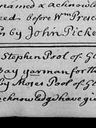 named & acknowled
eed before Wm. Presc
& by John Picke
Stephen Pool of Gl
Bay yarman for th
by Moses Pool of Gl
cknowledge have giv